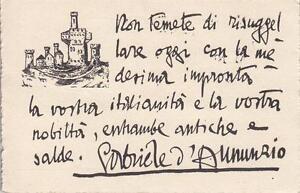 Non temete di risuggel
lare oggi con la me
desima impronta
la vostra italianità e la vostra
nobiltà, entrambe antiche e
salde. Gabriele d'Annunzio